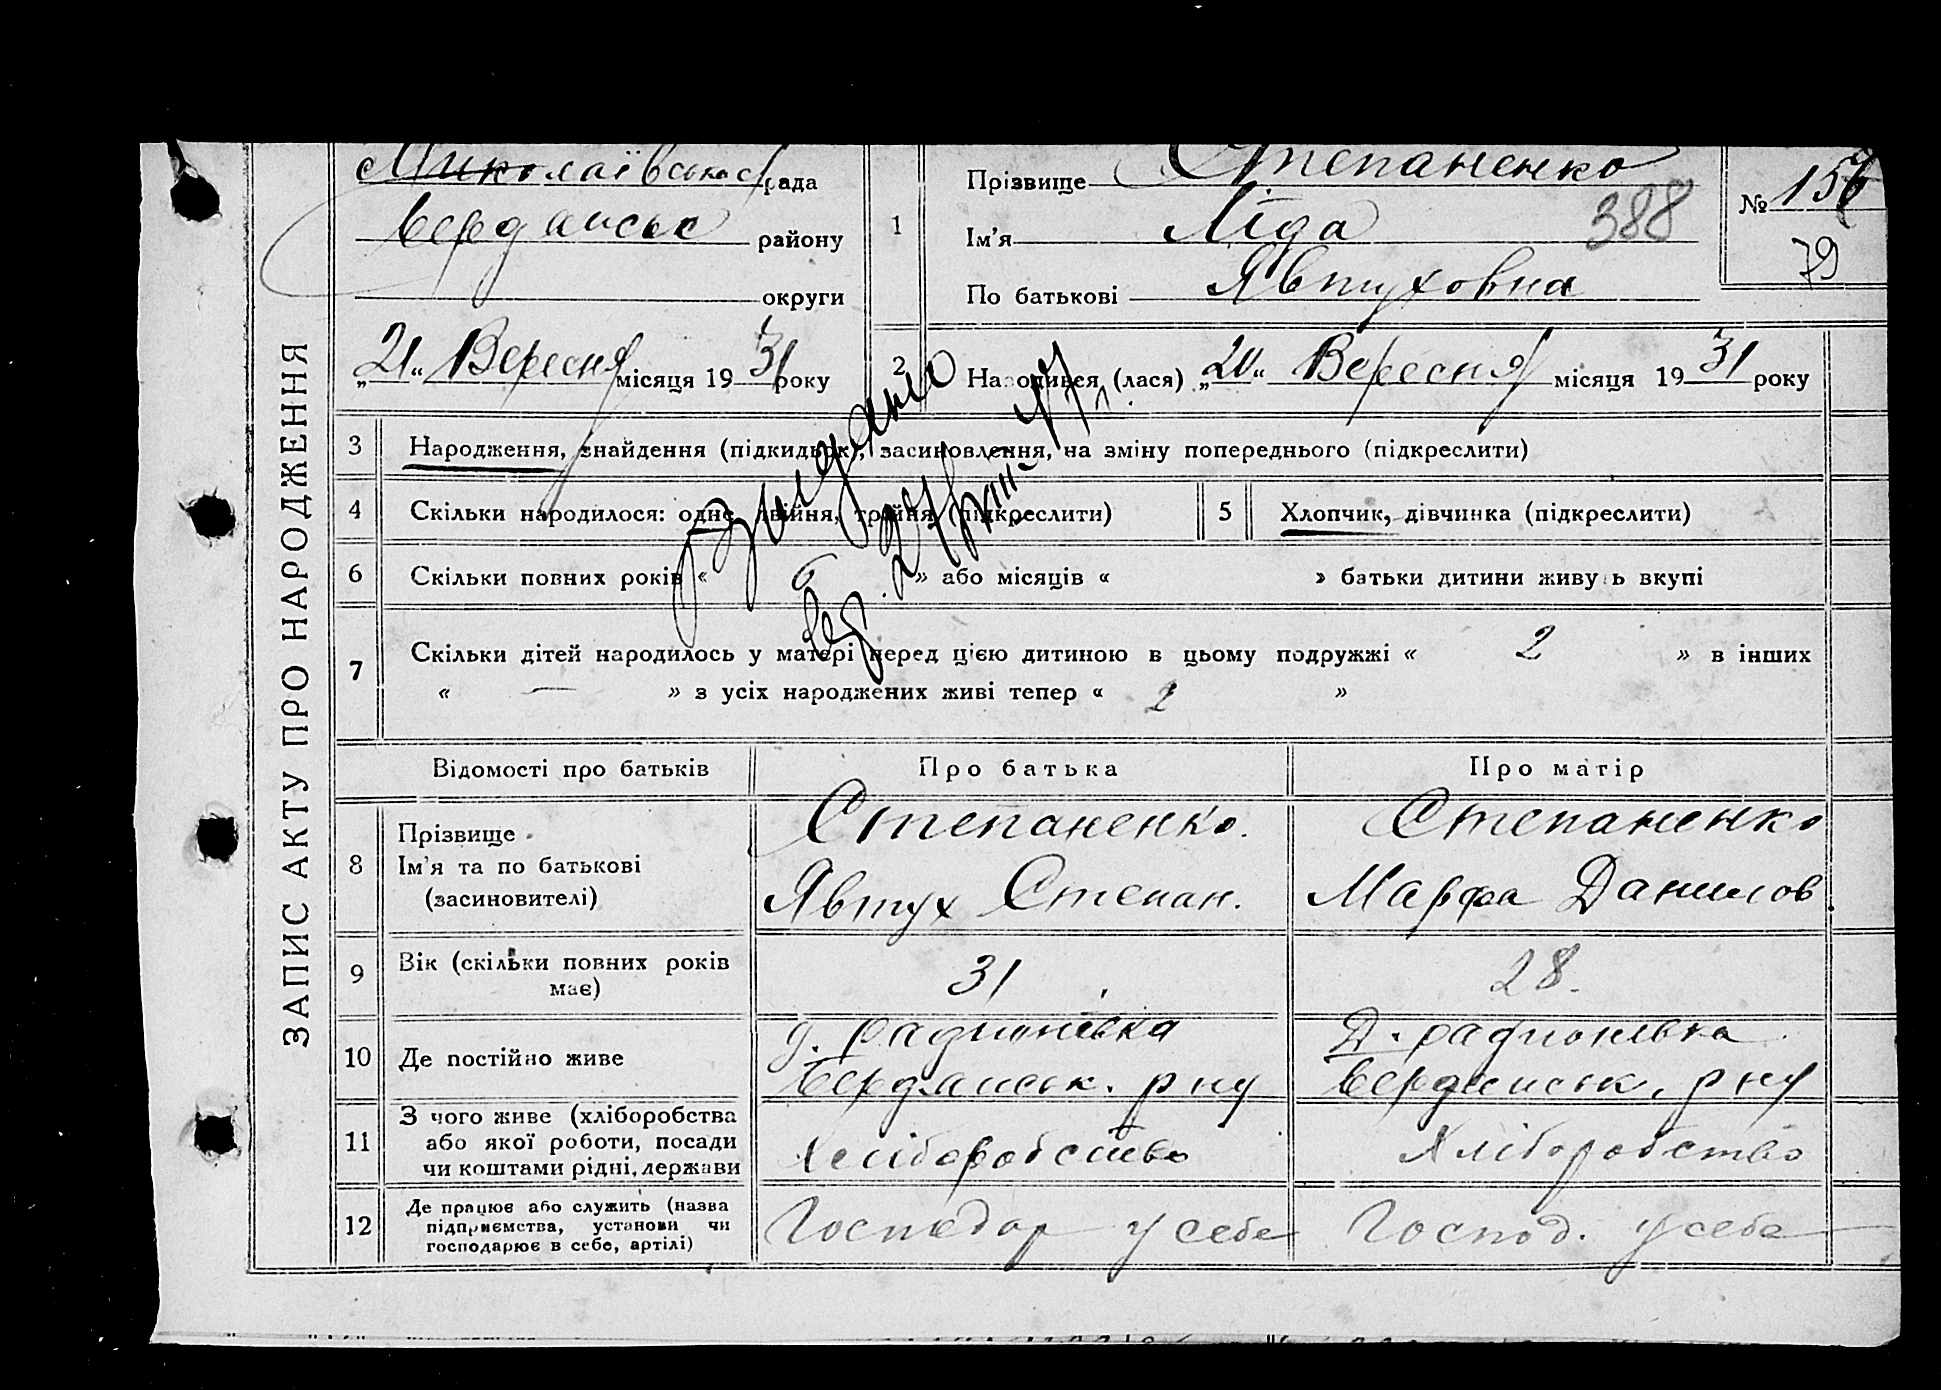 ЗАПИС АКТУ ПРО НАРОДЖЕННЯ
Миколаївська рада
Бердянськ району
округи
„21“ Вересня місяця 1931 року
1
Прізвище Степаненко
Ім'я Ліда 388
По батькові Явтуховна
№ 156
79
2 Народився (лася) „20“ Вересня місяця 1931 року
3 Народження, знайдення (підкидьок), засиновлення, на зміну попереднього (підкреслити)
4 Скільки народилося: одне, двійня, тройня (підкреслити)
5 Хлопчик, дівчинка (підкреслити)
6 Скільки повних років « 6 » або місяців « » батьки дитини живуть вкупі
7 Скільки дітей народилось у матері перед цією дитиною в цьому подружжі « 2 » в інших
« — » з усіх народжених живі тепер « 2 »
Відомості про батьків Про батька Про матір
8 Прізвище
Ім'я та по батькові
(засиновителі)
Степаненко.
Явтух Степан.
Степаненко
Марфа Данилов.
9 Вік (скільки повних років
має)
31
28.
10 Де постійно живе
д. Радионівка
Бердянськ. р ну
Д. Радионівка
Бердянськ. р ну
11 З чого живе (хліборобства
або якої роботи, посади
чи коштами рідні, держави
Хліборобство
Хліборобство
12 Де працює або служить (назва
підприємства, установи чи
господарює в себе, артілі)
Господар у себе
Господ. у себе